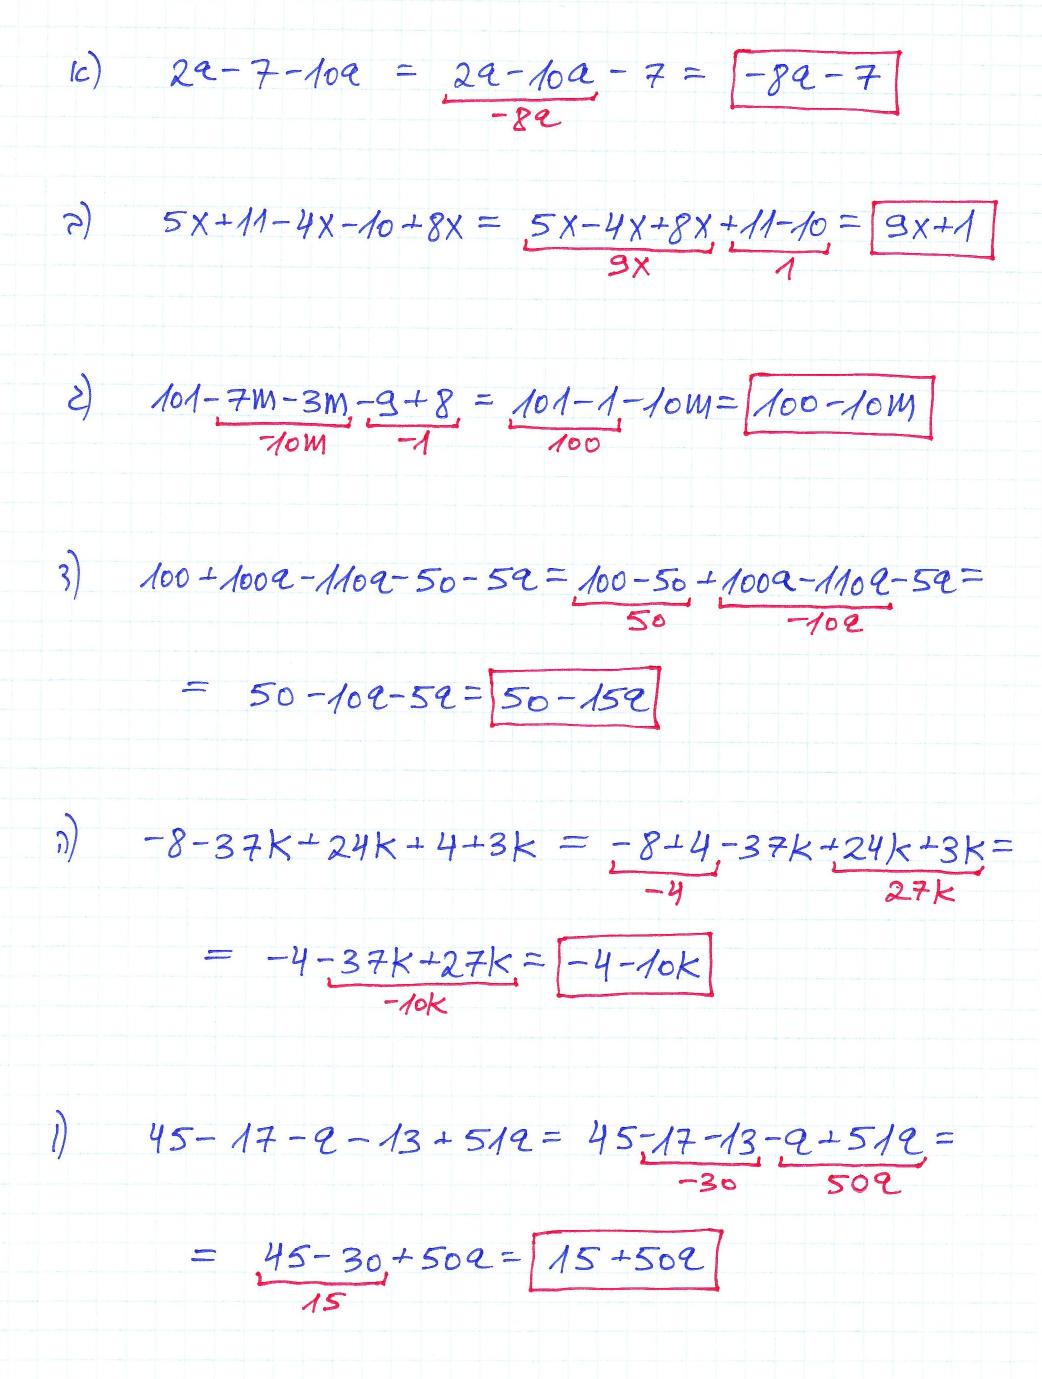 א) 2a - 7 - 10a = 2a - 10a - 7 = -8a - 7
-8a
ב) 5x + 11 - 4x - 10 + 8x = 5x - 4x + 8x + 11 - 10 = 9x + 1
9x 1
ג) 101 - 7m - 3m - 9 + 8 = 101 - 1 - 10m = 100 - 10m
-10m -1 100
ד) 100 + 100a - 110a - 50 - 5a = 100 - 50 + 100a - 110a - 5a =
50 -10a
= 50 - 10a - 5a = 50 - 15a
ה) -8 - 37k + 24k + 4 + 3k = -8 + 4 - 37k + 24k + 3k =
-4 27k
= -4 - 37k + 27k = -4 - 10k
-10k
ו) 45 - 17 - a - 13 + 51a = 45 - 17 - 13 - a + 51a =
-30 50a
= 45 - 30 + 50a = 15 + 50a
15